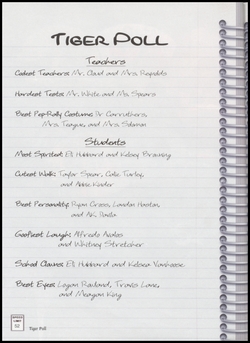 TIGER POLL
Teachers
Coolest Teachers: Mr. Cloud and Mrs. Reynolds
Hardest Tests: Mr. White and Ms. Spears
Best Pep-Rally Costume: Dr Carruthers,
Mrs. Teague, and Mrs. Sdaman
Students
Most Spirited: Eli Hubbard and Kelsey Browning
Cutest Walk: Taylor Spear, Cole Turley,
and Abbie Kinder
Best Personality: Ryan Cross, Landon Hostas,
and AK
Goofiest Laugh: Alfredo Avalos
and Whitney Stretcher
School Clowns: Eli Hubbard and Kelsea Vanhoose
Best Eyes: Logan Rowland, Travis Lane,
and Meagan King
52
Tiger Poll